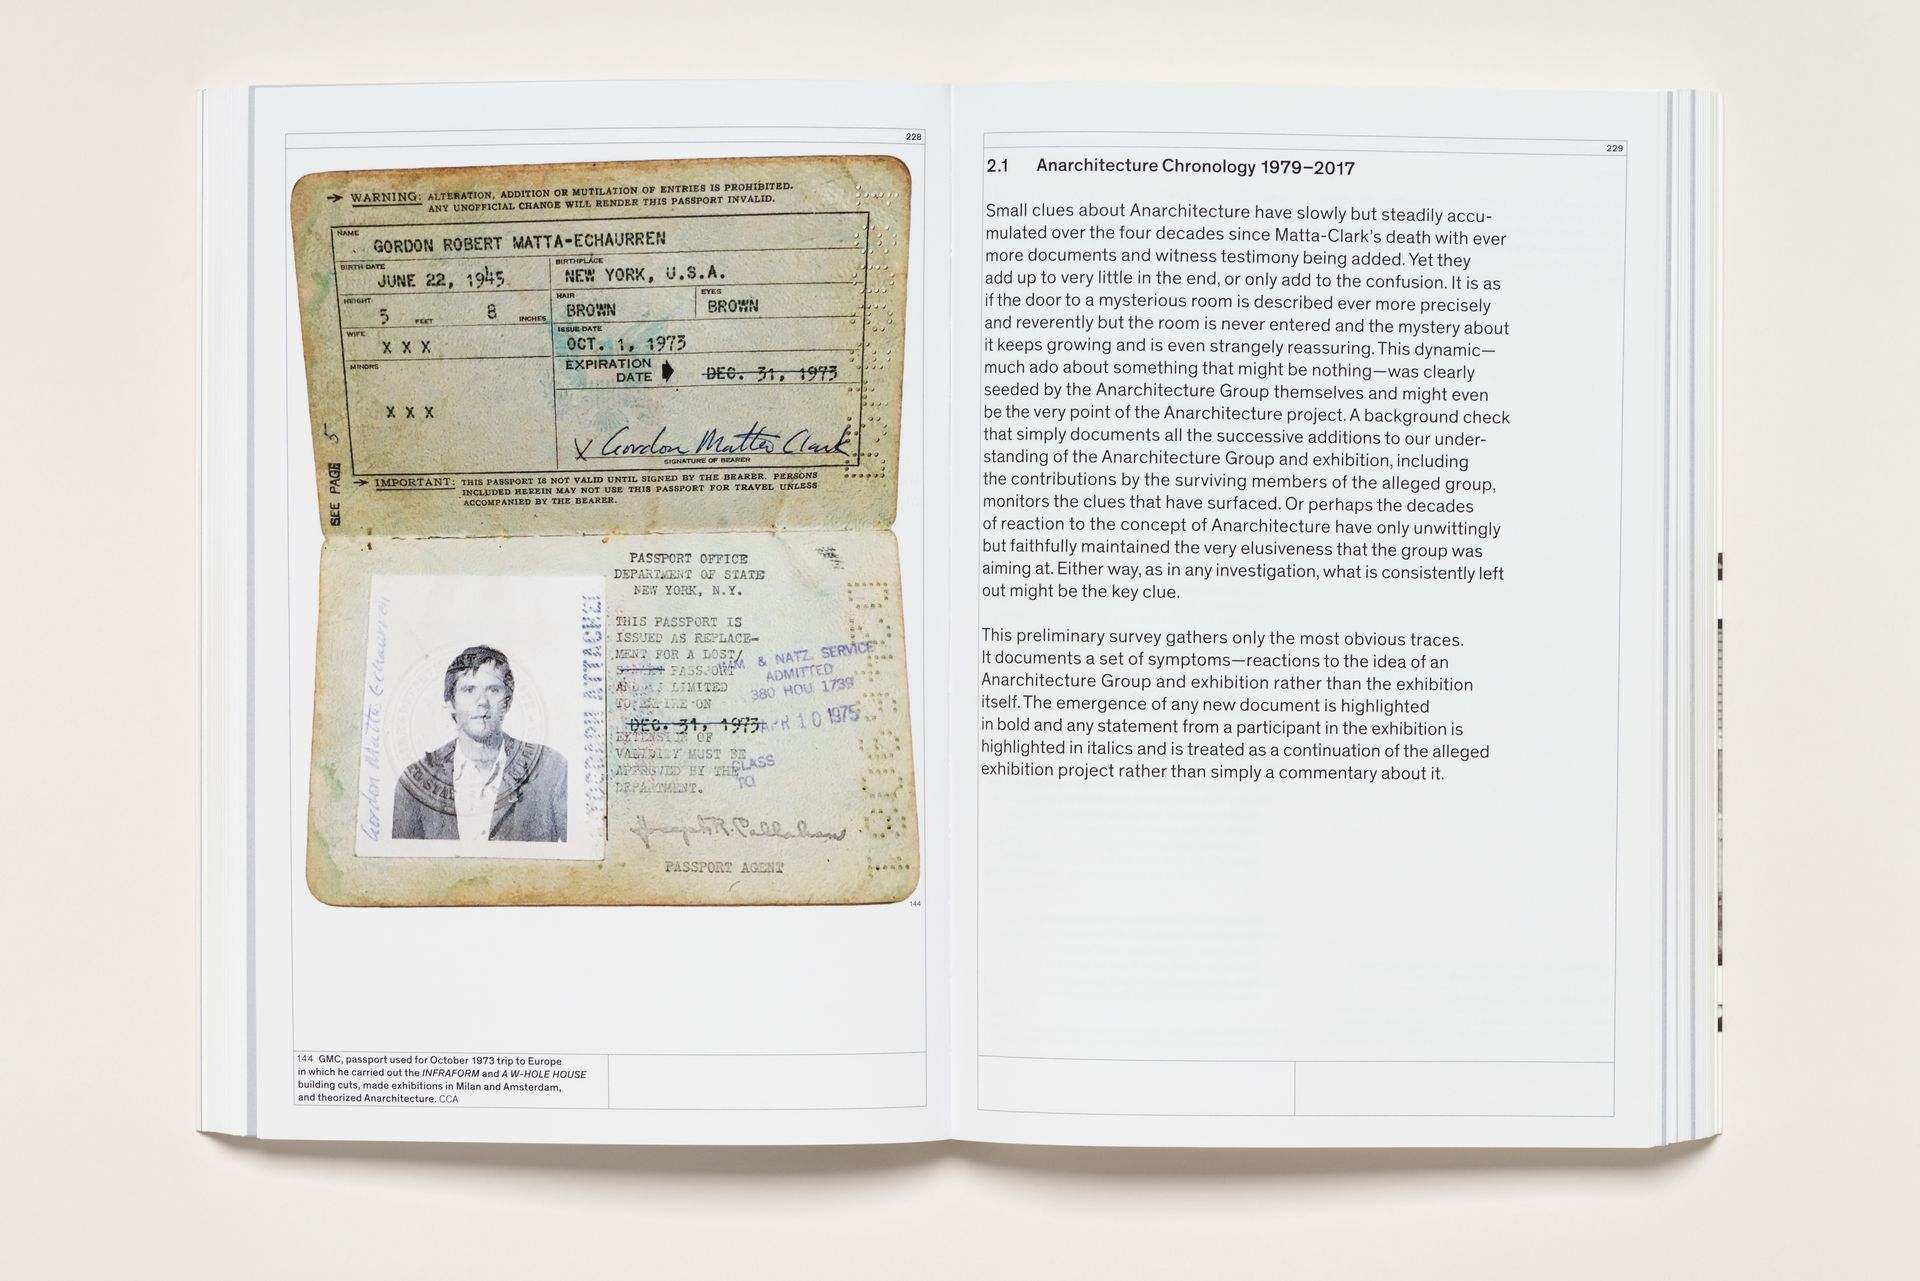 228
→ WARNING: ALTERATION, ADDITION OR MUTILATION OF ENTRIES IS PROHIBITED.
ANY UNOFFICIAL CHANGE WILL RENDER THIS PASSPORT INVALID.
NAME
GORDON ROBERT MATTA-ECHAURREN
BIRTH DATE
JUNE 22, 1945
BIRTHPLACE
NEW YORK, U.S.A.
HEIGHT
5 FEET 8 INCHES
HAIR
BROWN
EYES
BROWN
WIFE
X X X
ISSUE DATE
OCT. 1, 1973
MINORS
X X X
EXPIRATION
DATE
DEC. 31, 1973
X Gordon Matta Clark
SIGNATURE OF BEARER
SEE PAGE 5
→ IMPORTANT: THIS PASSPORT IS NOT VALID UNTIL SIGNED BY THE BEARER. PERSONS
INCLUDED HEREIN MAY NOT USE THIS PASSPORT FOR TRAVEL UNLESS
ACCOMPANIED BY THE BEARER.
PASSPORT OFFICE
DEPARTMENT OF STATE
NEW YORK, N.Y.
THIS PASSPORT IS
ISSUED AS REPLACE-
MENT FOR A LOST/
PASSPORT
AND IS LIMITED
TO EXPIRE ON
DEC. 31, 1973
EXTENSION OF
VALIDITY MUST BE
APPROVED BY THE
DEPARTMENT.
IMM & NATZ. SERVICE
ADMITTED
380 HOU 1739
APR 10 1975
CLASS
TO
Gordon Matta Echaurren
Joseph R. Callahan
PASSPORT AGENT
144
144 GMC, passport used for October 1973 trip to Europe
in which he carried out the INFRAFORM and A W-HOLE HOUSE
building cuts, made exhibitions in Milan and Amsterdam,
and theorized Anarchitecture. CCA
229
2.1 Anarchitecture Chronology 1979–2017
Small clues about Anarchitecture have slowly but steadily accu-
mulated over the four decades since Matta-Clark’s death with ever
more documents and witness testimony being added. Yet they
add up to very little in the end, or only add to the confusion. It is as
if the door to a mysterious room is described ever more precisely
and reverently but the room is never entered and the mystery about
it keeps growing and is even strangely reassuring. This dynamic—
much ado about something that might be nothing—was clearly
seeded by the Anarchitecture Group themselves and might even
be the very point of the Anarchitecture project. A background check
that simply documents all the successive additions to our under-
standing of the Anarchitecture Group and exhibition, including
the contributions by the surviving members of the alleged group,
monitors the clues that have surfaced. Or perhaps the decades
of reaction to the concept of Anarchitecture have only unwittingly
but faithfully maintained the very elusiveness that the group was
aiming at. Either way, as in any investigation, what is consistently left
out might be the key clue.
This preliminary survey gathers only the most obvious traces.
It documents a set of symptoms—reactions to the idea of an
Anarchitecture Group and exhibition rather than the exhibition
itself. The emergence of any new document is highlighted
in bold and any statement from a participant in the exhibition is
highlighted in italics and is treated as a continuation of the alleged
exhibition project rather than simply a commentary about it.